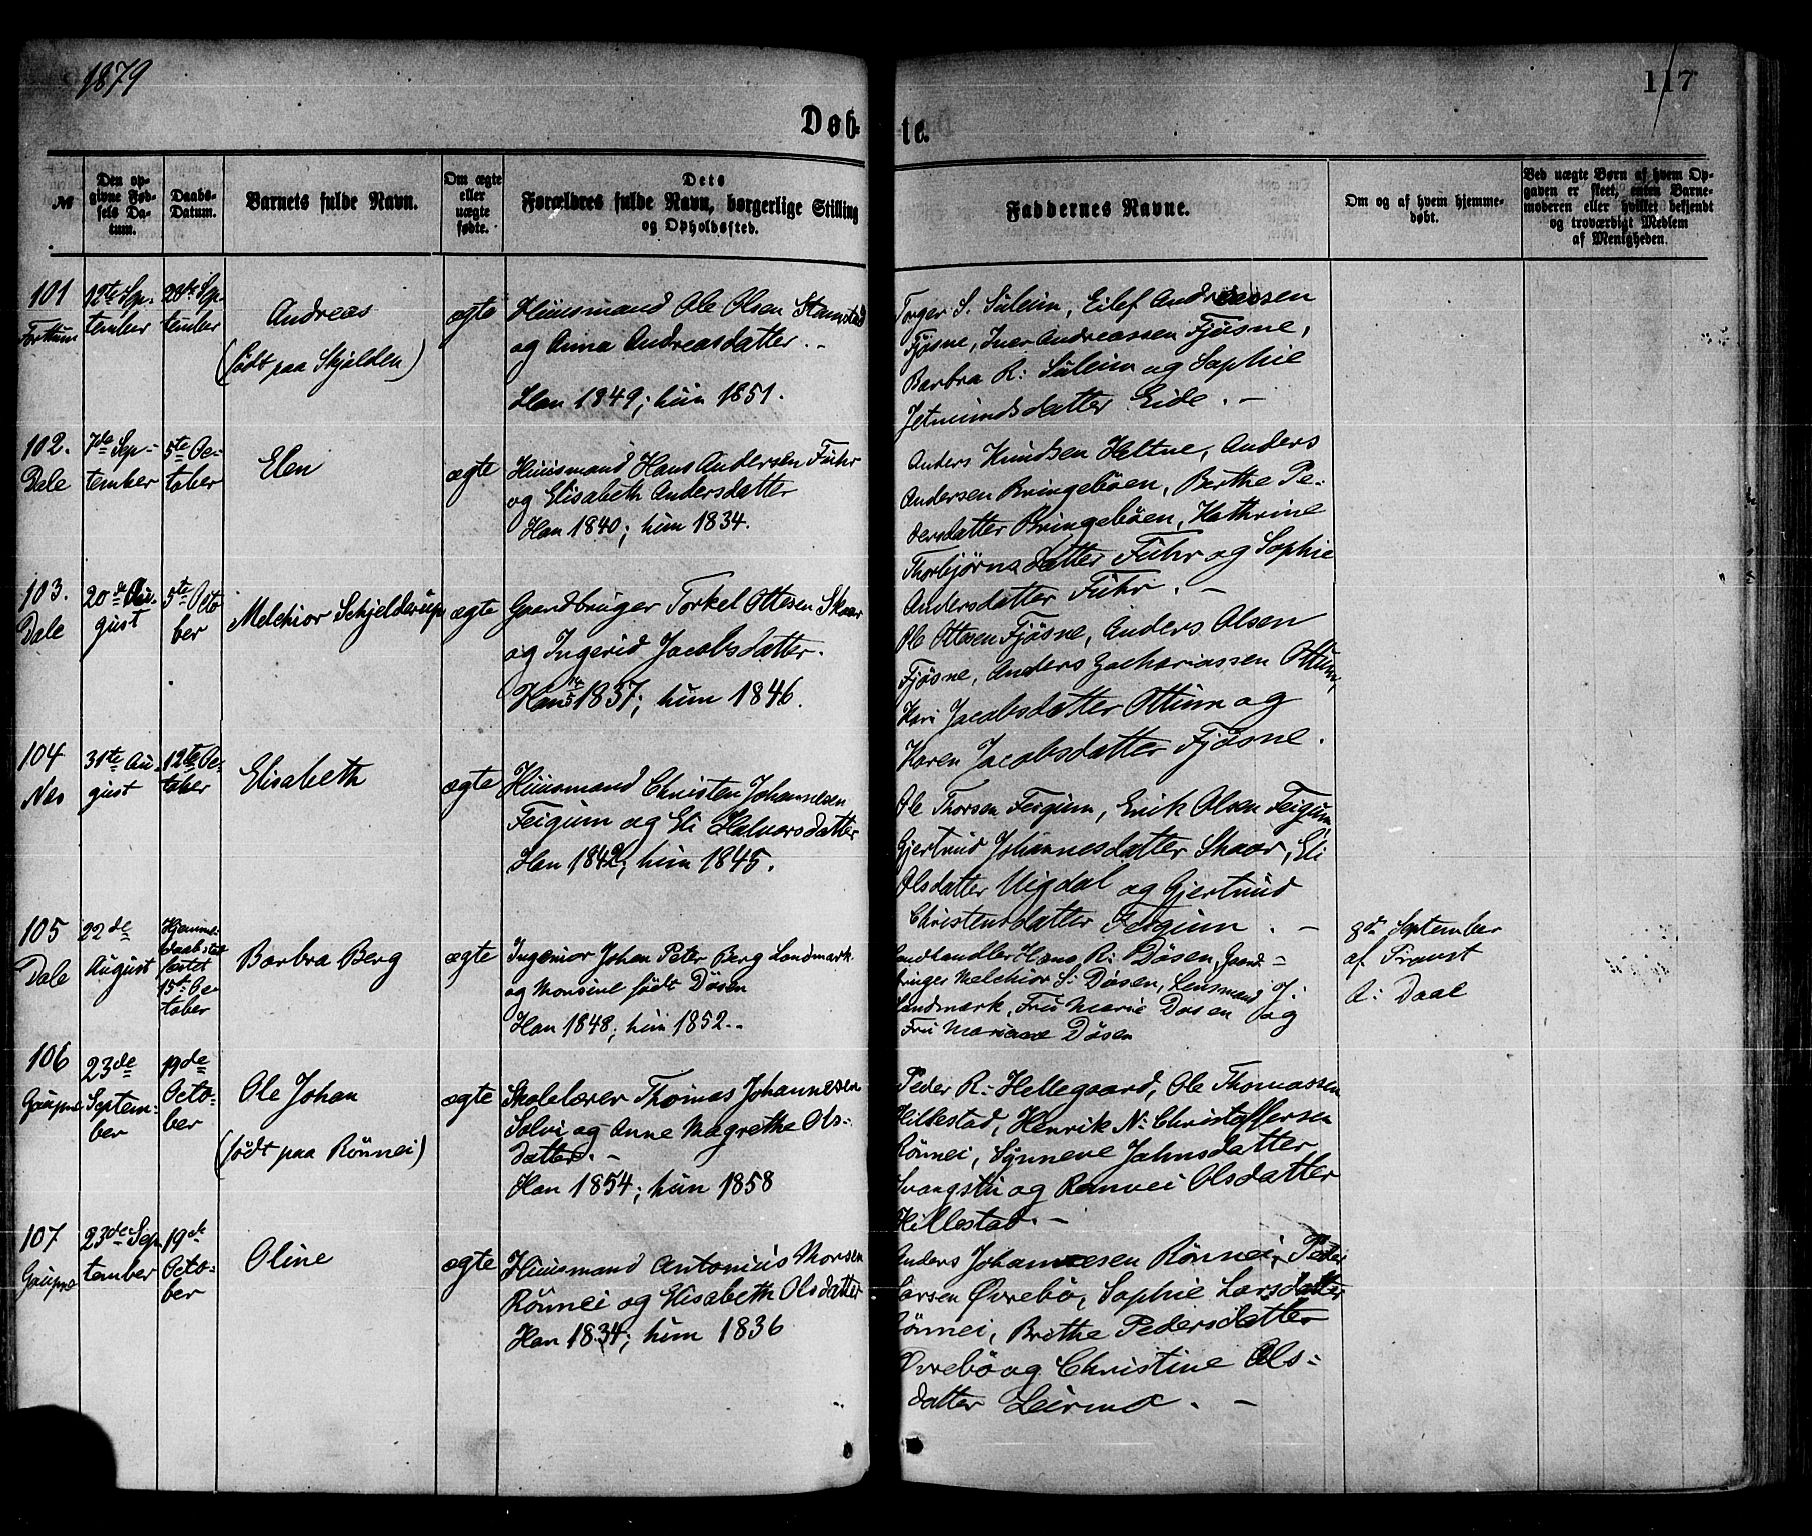 1879
117
Døb-
te.
№
Den op-
givne Fød-
sels Da-
tum.
Daabs-
Datum.
Barnets fulde Navn.
Om ægte
eller
uægte
fødte.
Dets
Forældres fulde Navn, borgerlige Stilling
og Opholdssted.
Faddernes Navne.
Om og af hvem hjemme-
døbt.
Ved uægte Børn af hvem Op-
gaven er skeet, enten Barne-
moderen eller hvilket bekjendt
og troværdigt Medlem
af Menigheden.
101
Forttun
12te Sep-
tember
28de Sep-
tember
Andreas
(født paa Skjolden)
ægte
Huusmand Ole Olsen Stamstad
og Anna Andreasdatter. -
Han 1849; hun 1851.
Torger S. Süleim, Eilef Andreassen
Fjøsne, Iver Andreassen Fjøsne,
Barbra R: Süleim og Sophie
Jetmundsdatter Eide. -
102.
Dale
7de Sep-
tember
5te Oc-
tober
Elen
ægte
Huusmand Hans Andersen Fuhr
og Elisabeth Andersdatter
Han 1840; hun 1834.
Anders Knudsen Heltne, Anders
Andersen Bringebøen, Berthe Pe-
dersdatter Bringebøen, Kathrine
Thorbjørnsdatter Fuhr og Sophie
Andersdatter Fuhr. -
103.
Dale
20de Au-
gust
5te Octo
ber
Melchior Schjelderup
ægte
Gaardbruger Torkel Ottesen Skaar
og Ingerid Jacobsdatter.
Han 1837; hun 1846.
Ole Ottesen Fjøsne, Anders Olsen
Fjøsne, Anders Zachariassen Ottum,
Kari Jacobsdatter Ottum og
Karen Jacobsdatter Fjøsne.
104
Nes
31te Au-
gust
12te Oc-
tober
Elisabeth
ægte
Huusmand Christen Johannesen
Feigum og Eli Halvorsdatter
Han 1842; hun 1845.
Ole Thorsen Feigum, Erik Olsen Feigum
Gjertrud Johannesdatter Skaar, Eli
Olsdatter Uigdal og Gjertrud
Christensdatter Feigum. -
105
Dale
22de
August
Hjemme-
daab stad-
fæstet
15de Oc-
tober
Barbra Berg
ægte
Ingeniør Johan Peter Berg Landmark
og Monsine født Døsen
Han 1848; hun 1852. -
Landhandler Hans R: Døsen, Gaard-
bruger Melchior S: Døsen, Lensmand J:
Landmark, Fru Marie Døsen og
Fru Mariane Døsen
8de September
af Provst
A: Daae
106
Gaupne
23de
Septem-
ber
19de
Octo-
ber
Ole Johan
(født paa Rønnei)
ægte
Skolelærer Thomas Johannesen
Solvi og Anne Magrethe Ols-
datter. -
Han 1854; hun 1858
Peder R: Hellegaard, Ole Thomassen
Hillestad, Henrik N: Christoffersen
Rønnei, Synneve Jahnsdatter
Svangstu og Ranvei Olsdatter
Hillestad. -
107
Gaupne
23de Sep-
tember
19de
Octo-
ber
Oline
ægte
Huusmand Antonius Monsen
Rønnei og Elisabeth Olsdatter
Han 1834; hun 1836
Anders Johannesen Rønnei, Peder
Larsen Øvrebø, Sophie Larsdatter
Rønnei, Brethe Pedersdatter
Øvrebø og Christine Ols-
datter Leirmo. -